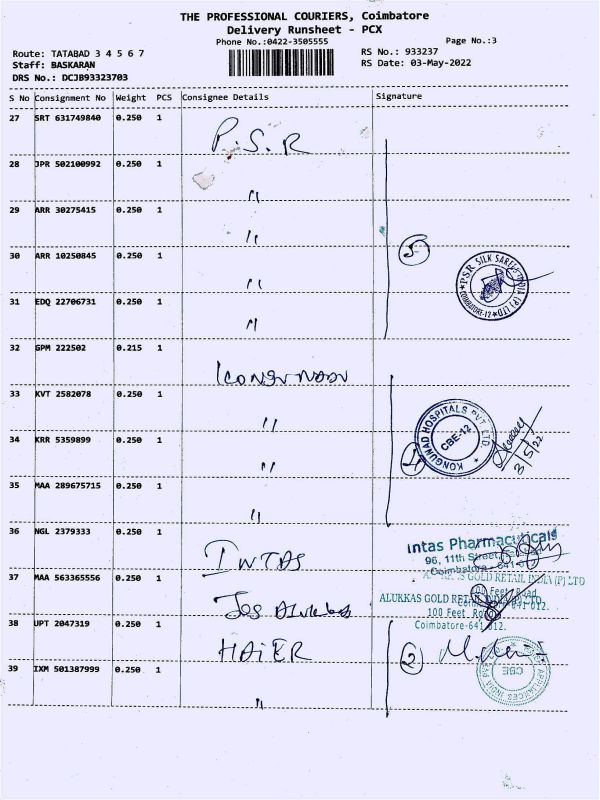 THE PROFESSIONAL COURIERS, Coimbatore
Delivery Runsheet - PCX
Phone No.:0422-3505555
Page No.:3
Route: TATABAD 3 4 5 6 7
RS No.: 933237
Staff: BASKARAN
RS Date: 03-May-2022
DRS No.: DCJB93323703
S No Consignment No Weight PCS Consignee Details Signature
27 SRT 631749840 0.250 1 P.S.R
28 JPR 502100992 0.250 1 "
29 ARR 30275415 0.250 1 "
30 ARR 10250845 0.250 1 "
5
PSR SILK SAREES INDIA (P) LTD
COIMBATORE-12
31 EDQ 22706731 0.250 1 "
32 GPM 222502 0.215 1 KONGUNADU
33 KVT 2582078 0.250 1 "
34 KRR 5359899 0.250 1 "
4
KONGUNAD HOSPITALS PVT. LTD.
CBE-12
3/5/22
35 MAA 289675715 0.250 1 "
36 NGL 2379333 0.250 1 INTAS
Intas Pharmaceuticals
96, 11th Street,
Coimbatore - 641 0
37 MAA 563365556 0.250 1 Jos Alukkas
GOLD RETAIL INDIA (P) LTD
100 Feet Road
ALUKKAS GOLD RETAIL INDIA (P) LTD.
Coimbatore-641 012.
100 Feet Road
Coimbatore-641 012.
38 UPT 2047319 0.250 1 HAIER
2
APPLIANCES INDIA PVT
CBE
39 IXM 501387999 0.250 1 "